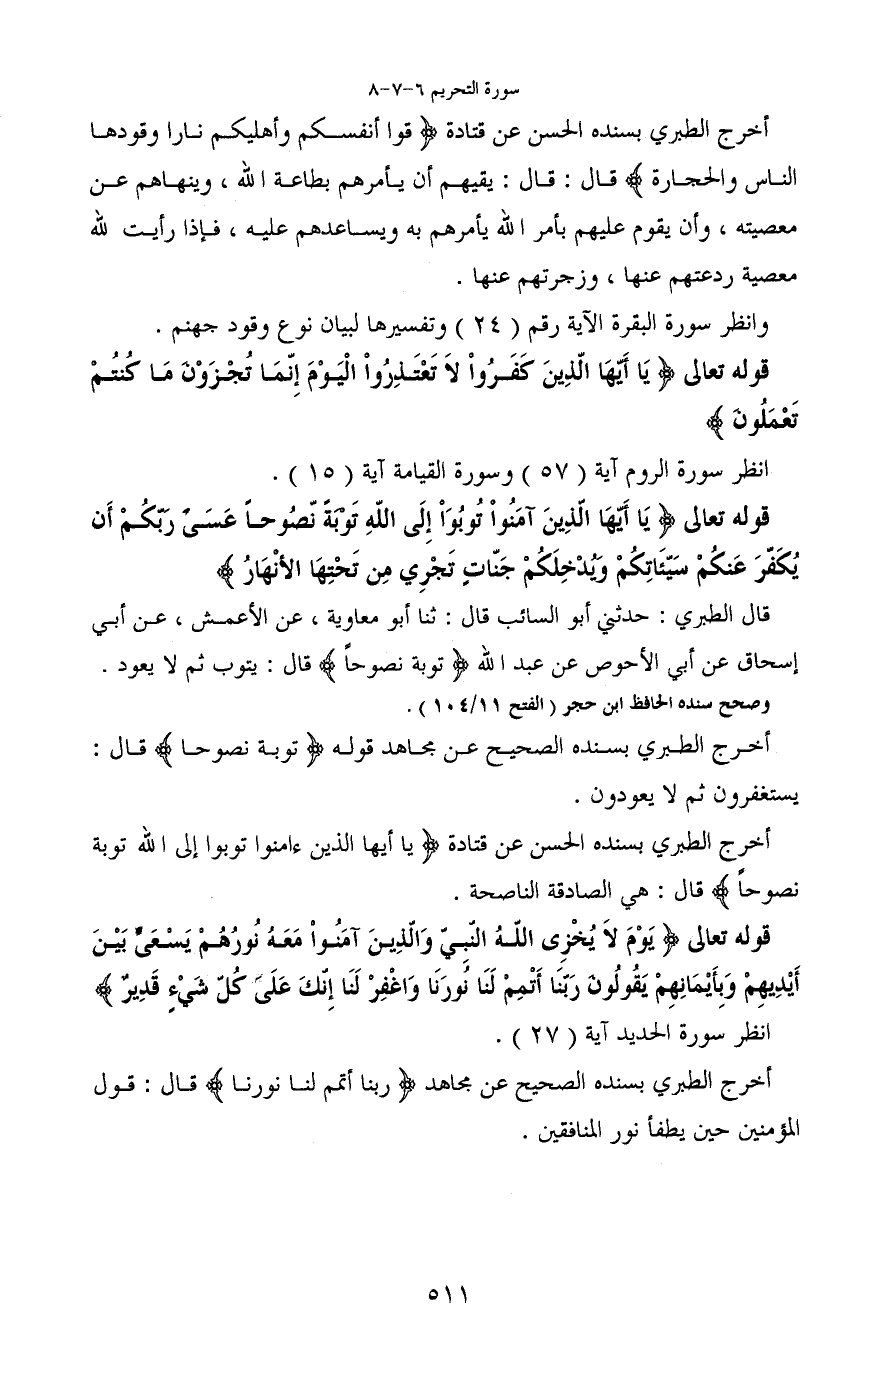 سورة التحريم ٦-٧-٨
أخرج الطبري بسنده الحسن عن قتادة ﴿ قوا أنفسكم وأهليكم نارا وقودها
الناس والحجارة ﴾ قال : قال : يقيهم أن يأمرهم بطاعة الله ، وينهاهم عن
معصيته ، وأن يقوم عليهم بأمر الله يأمرهم به ويساعدهم عليه ، فإذا رأيت لله
معصية ردعتهم عنها ، وزجرتهم عنها .
وانظر سورة البقرة الآية رقم ( ٢٤ ) وتفسيرها لبيان نوع وقود جهنم .
قوله تعالى ﴿ يَا أَيّهَا الّذِينَ كَفَرُواْ لاَ تَعْتَذِرُواْ الْيَوْمَ إِنّمَا تُجْزَوْنَ مَا كُنتُمْ
تَعْمَلُونَ ﴾
انظر سورة الروم آية ( ٥٧ ) وسورة القيامة آية ( ١٥ ) .
قوله تعالى ﴿ يَا أَيّهَا الّذِينَ آمَنُواْ تُوبُوَاْ إِلَى اللّهِ تَوْبَةً نّصُوحاً عَسَىَ رَبّكُمْ أَن
يُكَفّرَ عَنكُمْ سَيّئَاتِكُمْ وَيُدْخِلَكُمْ جَنّاتٍ تَجْرِي مِن تَحْتِهَا الأنْهَارُ ﴾
قال الطبري : حدثني أبو السائب قال : ثنا أبو معاوية ، عن الأعمش ، عن أبي
إسحاق عن أبي الأحوص عن عبد الله ﴿ توبة نصوحاً ﴾ قال : يتوب ثم لا يعود .
وصحح سنده الحافظ ابن حجر ( الفتح ١٠٤/١١ ) .
أخرج الطبري بسنده الصحيح عن مجاهد قوله ﴿ توبة نصوحا ﴾ قال :
يستغفرون ثم لا يعودون .
أخرج الطبري بسنده الحسن عن قتادة ﴿ يا أيها الذين ءامنوا توبوا إلى الله توبة
نصوحاً ﴾ قال : هي الصادقة الناصحة .
قوله تعالى ﴿ يَوْمَ لاَ يُخْزِى اللّهُ النّبِيّ وَالّذِينَ آمَنُواْ مَعَهُ نُورُهُمْ يَسْعَىَ بَيْنَ
أَيْدِيهِمْ وَبِأَيْمَانِهِمْ يَقُولُونَ رَبّنَا أَتْمِمْ لَنَا نُورَنَا وَاغْفِرْ لَنَا إِنّكَ عَلَىَ كُلّ شَيْءٍ قَدِيرٌ ﴾
انظر سورة الحديد آية ( ٢٧ ) .
أخرج الطبري بسنده الصحيح عن مجاهد ﴿ ربنا أتمم لنا نورنا ﴾ قال : قول
المؤمنين حين يطفأ نور المنافقين .
٥١١